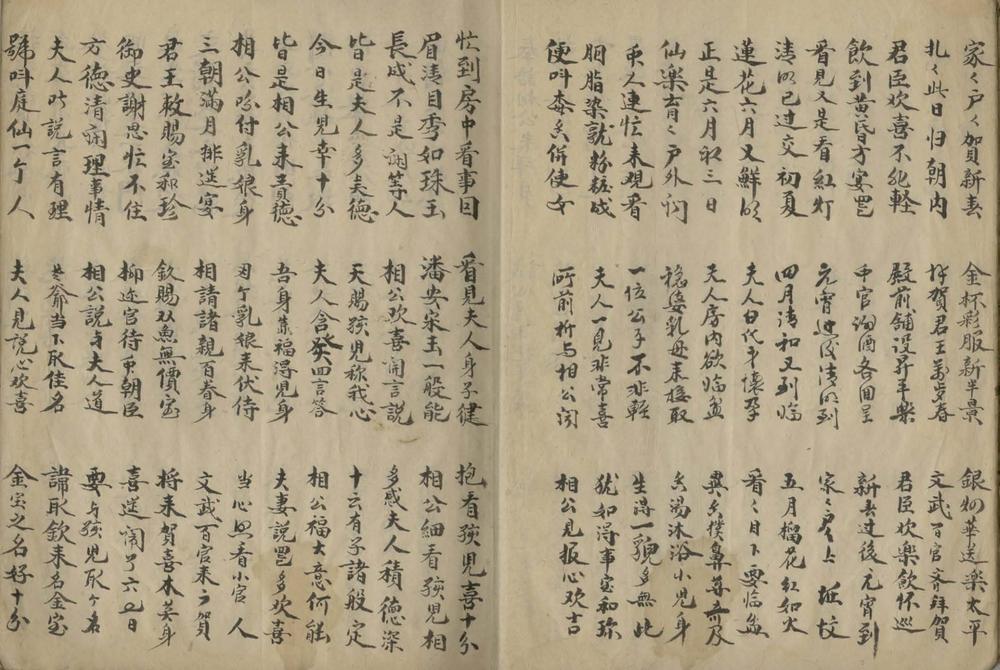 家〻戶〻賀新春 金杯彩服新半景 樂太平
此日归朝內 賀君王萬歲春 文武百官齐拜賀
君臣欢喜不非軽 殿前鋪設昇平樂 君臣欢樂飲怀巡
飲到黄昏方宴罢 酒各回 新春过後元宵到
看見又是看紅灯 元宵过後清明到 家〻户〻上坵坟
清明已过交初夏 四月清和又到临 五月榴花红如火
蓮花六月又鮮明 夫人 懷孕 看〻目下要临盆
正是六月初三日 夫人房内欲临盆 異香樸鼻
仙樂音〻户外闻 穏婆乳母来接取 香湯沐浴小児身
衆人連忙来观看 一位公子不非軽 生得一貌多無此
胭脂染就粉粧成 夫人一見非常喜 犹如得事宝和珎
便叫 香併使女 所前 与相公闻 相公見报心欢
忙到房中看事因 看見夫人身子健 抱看孩児喜十分
眉清目秀如珠玉 潘安宋玉一般能 相公細看孩児相
長成不是闲等人 相公欢喜開言説 多感夫人積德深
皆是夫人多 德 天賜孩児称我心 有子諸般定
今日生児幸十分 夫人含笑四言答 相公福大意何能
皆是相公来 德 吾身靠福得児身 夫妻説罢多欢喜
相公吩付乳娘身 个乳娘来伏侍 当心照看小官人
三朝滿月排筵宴 相請諸親百眷身 文武百官来 賀
君王敕賜宝和珍 欽賜双魚無價宝 将来賀喜木英身
御史謝恩忙不住 宫待衆朝臣 喜筵闹了六七日
方德清闲理事情 相公説与夫人道 要与孩児取个名
夫人听説言有理 老爺当下取佳名 諱取欽来名金宝
號叫庭仙一个人 夫人見説心欢喜 金宝之名好十分